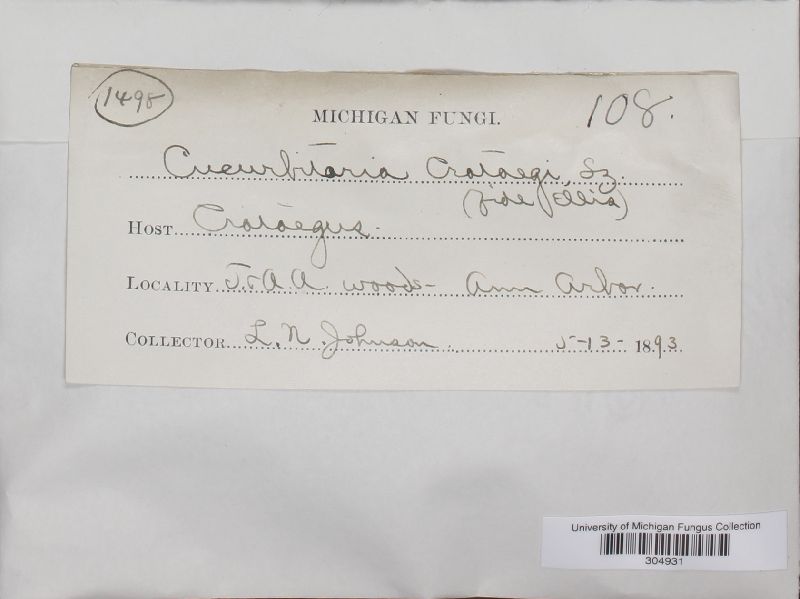 1498
MICHIGAN FUNGI.
108.
Cucurbitaria Crataegi, Sz.
(fide Ellis)
HOST Crataegus.
LOCALITY T & A A. woods - Ann Arbor.
COLLECTOR L. N. Johnson. 5-13-1893.
University of Michigan Fungus Collection
304931